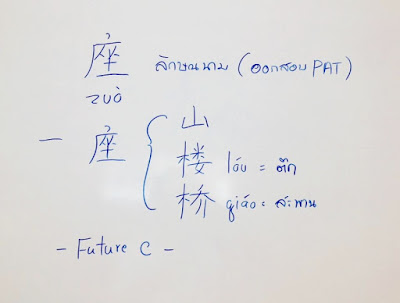 座 ลักษณนาม (ออกสอบ PAT)
zuò
一座 { 山
楼 lóu = ตึก
桥 qiáo = สะพาน
- Future C -